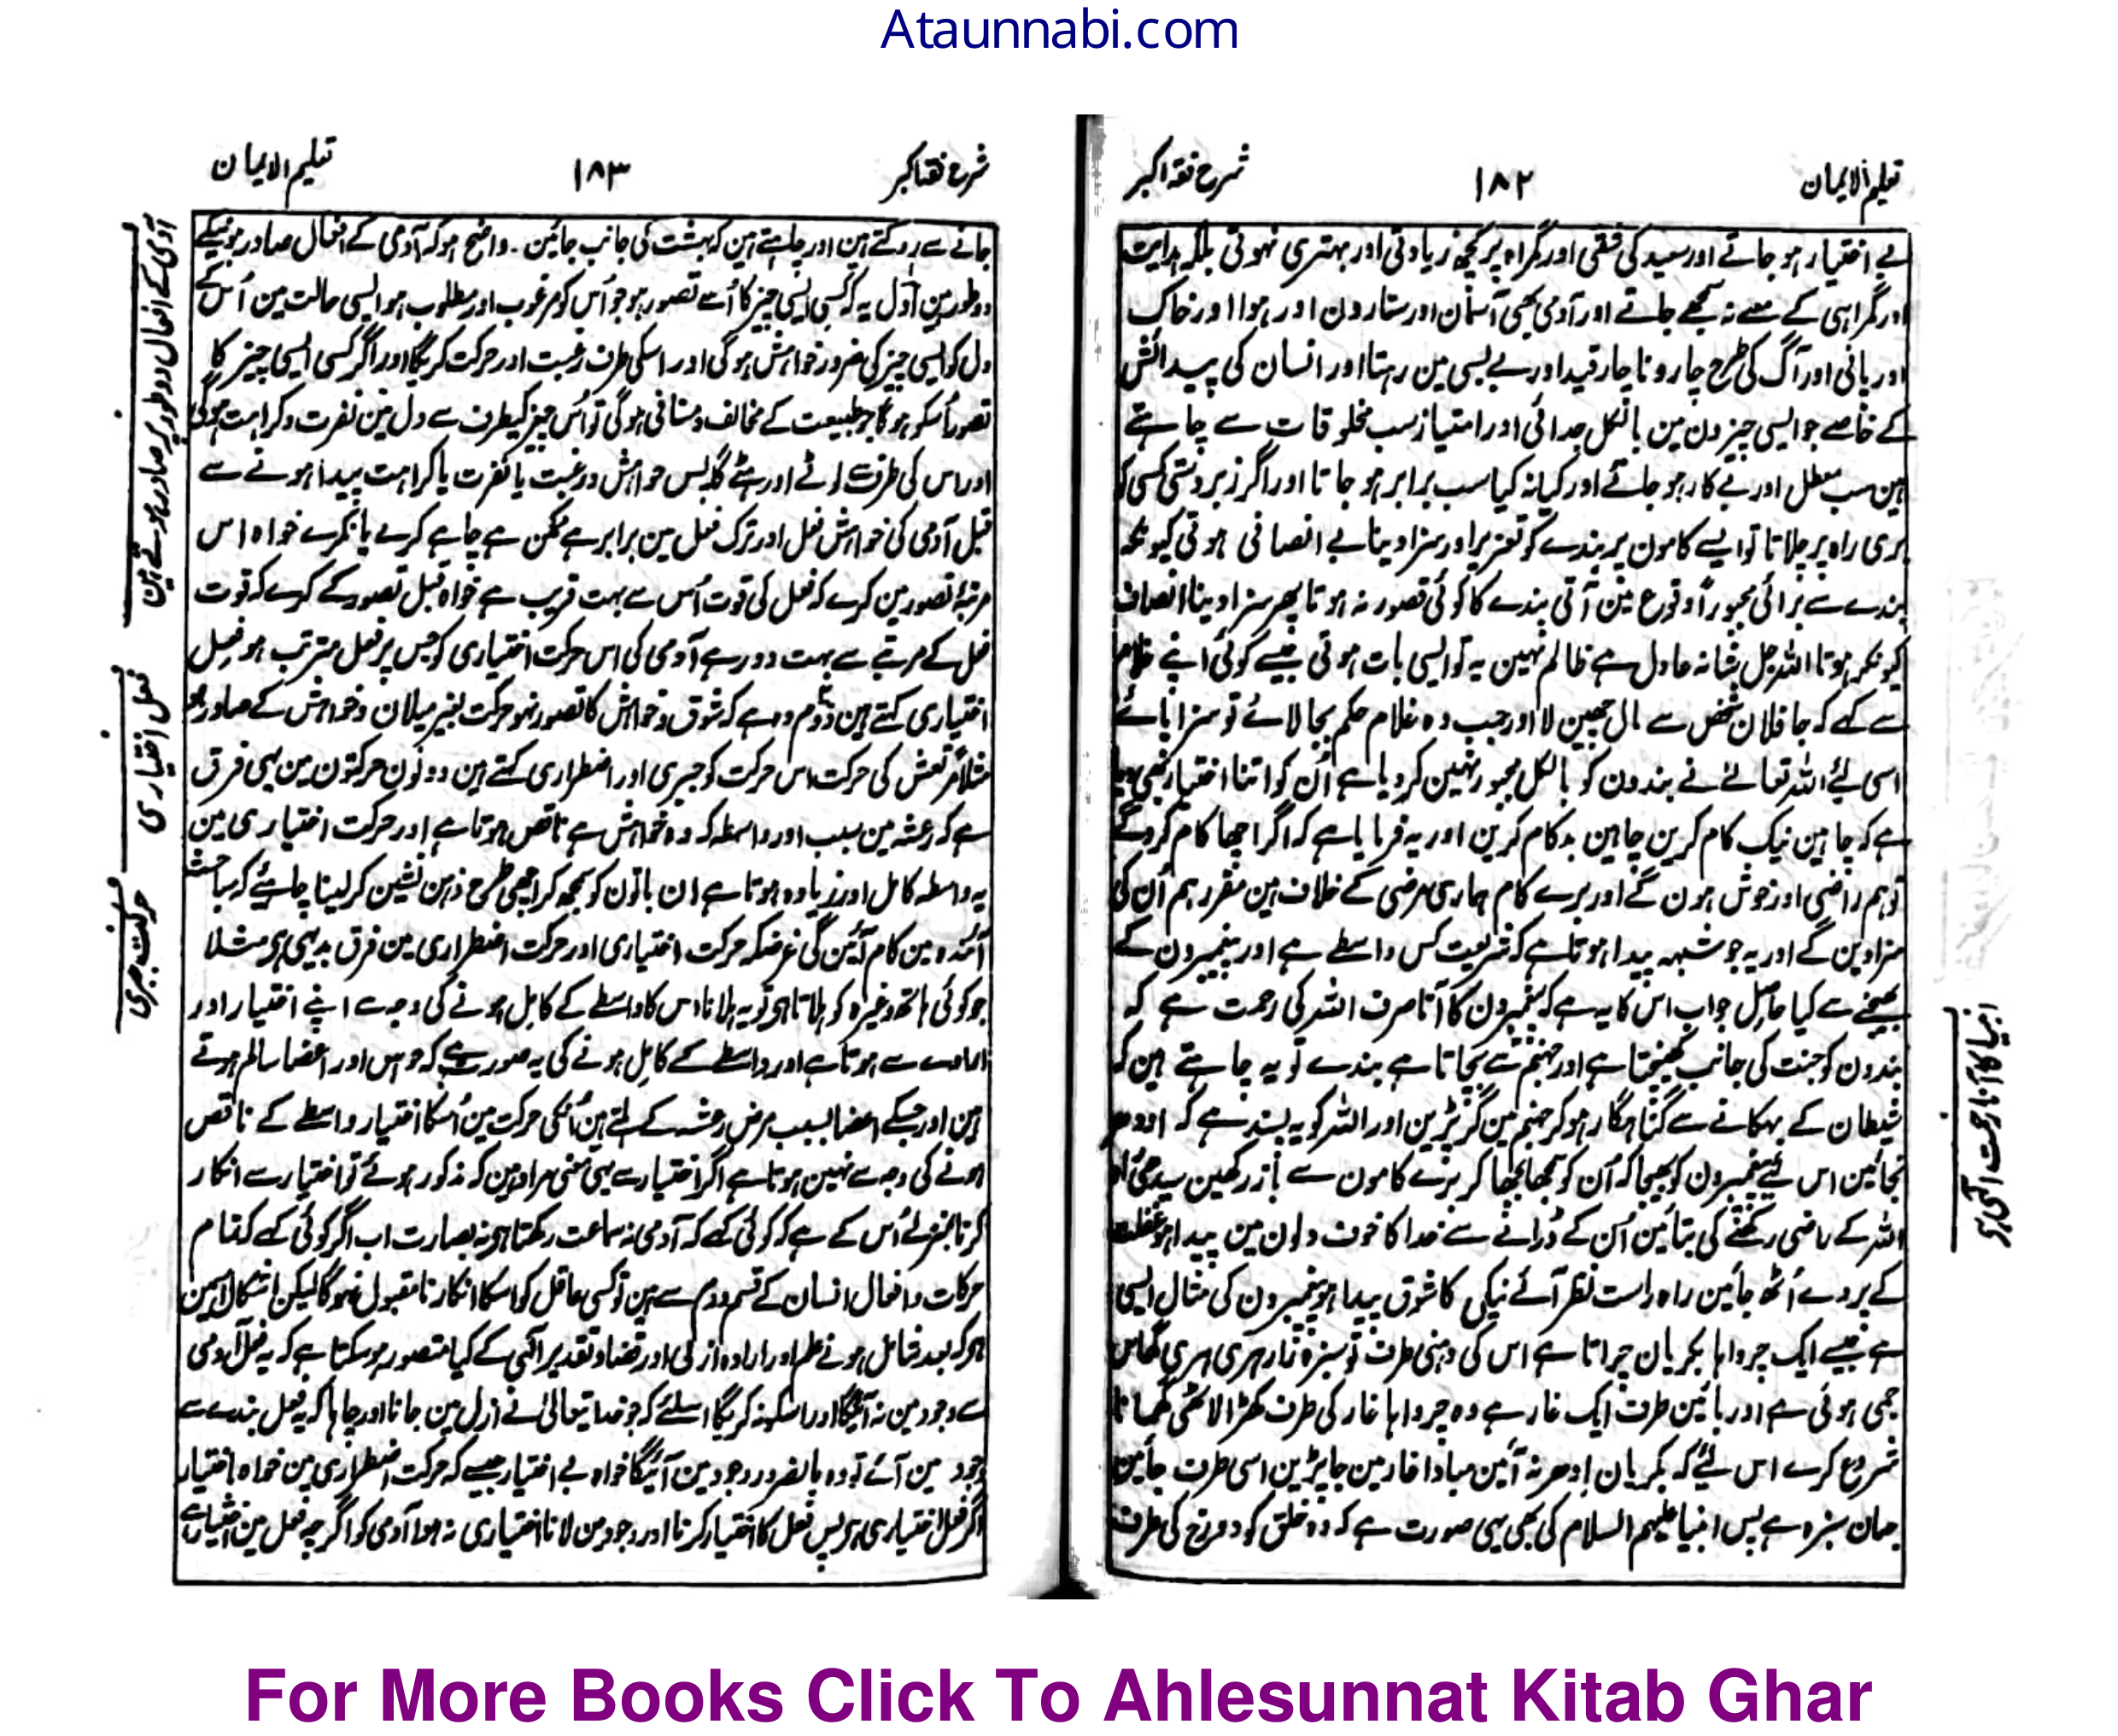 Ataunnabi.com
تعلیم الایمان ۱۸۲ شرح فقہ اکبر
بے اختیار ہو جاتے اور سعید کی شقی اور گمراہ پر کچھ زیادتی اور بہتری نہوتی بلکہ ہدایت
اور گمراہی کے معنے نہ سمجھے جاتے اور آدمی بھی آسمان اور ستارون اور ہوا اور خاک
اور پانی اور آگ کی طرح چار و ناچار قید اور بے بسی مین رہتا اور انسان کی پیدائش
کے خاصے جو ایسی چیزون مین بالکل جدائی اور امتیاز سب مخلوقات سے چاہتے
ہین سب معطل اور بے کار ہو جاتے اور کیا نہ کیا سب برابر ہو جاتا اور اگر زبردستی کسی کو
بری راہ پر چلاتا تو ایسے کامون پر بندے کو تعزیر اور سزا دینا بے انصافی ہوتی کیونکہ
بندے سے برائی مجبوراً وقوع مین آتی بندے کا کوئی قصور نہ ہوتا پھر سزا دینا انصاف
کیونکر ہوتا اللہ جل شانہ عادل ہے ظالم نہین یہ تو ایسی بات ہوتی جیسے کوئی اپنے غلام
سے کہے کہ جا فلان شخص سے مال چھین لا اور جب وہ غلام حکم بجا لائے تو سزا پائے
اسی لئے اللہ تعالے نے بندون کو بالکل مجبور نہین کر دیا ہے اُن کو اتنا اختیار بھی دیا
ہے کہ چاہین نیک کام کرین چاہین بد کام کرین اور یہ فرمایا ہے کہ اگر اچھا کام کروگے
تو ہم راضی اور خوش ہون گے اور برے کام ہماری مرضی کے خلاف ہین مقرر ہم اُن کی
سزا دین گے اور یہ جو شبہہ پیدا ہوتا ہے کہ شریعت کس واسطے ہے اور پیغمبرون کے
بھیجنے سے کیا حاصل جواب اس کا یہ ہے کہ پیغمبرون کا آنا صرف اللہ کی رحمت ہے کہ
بندون کو جنت کی جانب کھینچتا ہے اور جہنم سے بچاتا ہے بندے تو یہ چاہتے ہین کہ
شیطان کے بہکانے سے گناہگار ہو کر جہنم مین گر پڑین اور اللہ کو یہ پسند ہے کہ اودھر
نجائین اس لئے پیغمبرون کو بھیجا کہ اُن کو سمجھا بجھا کر برے کامون سے باز رکھین سیدھی راہ
اللہ کے راضی رکھنے کی بتائین اُن کے ڈرانے سے خدا کا خوف دلون مین پیدا ہو غفلت
کے پردے اُٹھ جائین راہ راست نظر آئے نیکی کا شوق پیدا ہو پیغمبرون کی مثال ایسی
ہے جیسے ایک چرواہا بکریان چراتا ہے اس کی دہنی طرف تو سبزہ زار ہری ہری گھاس
جمی ہوئی ہے اور بائین طرف ایک غار ہے وہ چرواہا غار کی طرف کھڑا لاٹھی گھمانا
شروع کرے اس لئے کہ بکریان ادھر نہ آئین مبادا غار مین جا پڑین اسی طرف جائین
جہان سبزہ ہے پس انبیا علیہم السلام کی بھی یہی صورت ہے کہ وہ خلق کو دوزخ کی طرف
انبیا کا آنا رحمت الٰہی ہے
شرح فقہ اکبر ۱۸۳ تعلیم الایمان
جانے سے روکتے ہین اور چاہتے ہین کہ بہشت کی جانب جائین ۔ واضح ہو کہ آدمی کے افعال صادر ہونیکے
دو طور ہین اول یہ کہ کسی ایسی چیز کا اُسے تصور ہو جو اُس کو مرغوب اور مطلوب ہو ایسی حالت مین اُس کے
دل کو ایسی چیز کی ضرور خواہش ہوگی اور اسکی طرف رغبت اور حرکت کریگا اور اگر کسی ایسی چیز کا
تصور اُسکو ہوگا جو طبیعت کے مخالف و منافی ہوگی تو اُس چیز کیطرف سے دل مین نفرت و کراہت ہوگی
اور اس کی طرف سے اور ہٹے گا پس خواہش و رغبت یا نفرت یا کراہت پیدا ہونے سے
قبل آدمی کی خواہش فعل اور ترک فعل مین برابر ہے ممکن ہے چاہے کرے یا نکرے خواہ اس
مرتبۂ تصور مین کرے کہ فعل کی قوت اُس سے بہت قریب ہے خواہ قبل تصور کے کرے کہ قوت
فعل کے مرتبے سے بہت دور ہے آدمی کی اس حرکت اختیاری کو جس پر فعل مترتب ہو فعل
اختیاری کہتے ہین دوم وہ ہے کہ شوق و خواہش کا تصور نہو حرکت بغیر میلان و خواہش کے صادر ہو
مثلاً مرتعش کی حرکت اس حرکت کو جبری اور اضطراری کہتے ہین دونون حرکتون مین یہی فرق
ہے کہ رعشہ مین سبب اور واسطہ کہ وہ خواہش ہے ناقص ہوتا ہے اور حرکت اختیاری مین
یہ واسطہ کامل اور زیادہ ہوتا ہے ان باتون کو سمجھ کر اچھی طرح ذہن نشین کر لینا چاہئے کہ مباحث
آئندہ مین کام آئین گی غرضکہ حرکت اختیاری اور حرکت اضطراری مین فرق بدیہی ہے مثلا
جو کوئی ہاتھ وغیرہ کو ہلاتا ہو تو یہ ہلانا اس کا واسطے کے کامل ہونے کی وجہ سے اپنے اختیار اور
ارادے سے ہوتا ہے اور واسطے کے کامل ہونے کی یہ صورت ہے کہ حواس اور اعضا سالم ہوتے
ہین اور جسکے اعضا بسبب مرض رعشہ کے ہلتے ہین اُنکی حرکت مین اُسکا اختیار واسطے کے ناقص
ہونے کی وجہ سے نہین ہوتا ہے اگر اختیار سے یہی معنی مراد ہین کہ مذکور ہوئے تو اختیار سے انکار
کرنا بمنزلے اُس کے ہے کہ کوئی کہے کہ آدمی نہ سماعت رکھتا ہے نہ بصارت اب اگر کوئی کہے کہ تمام
حرکات و افعال انسان کے قسم دوم سے ہین تو کسی عاقل کو اسکا انکار نا مقبول نہوگا لیکن اشکال اسمین
ہے کہ بعد شامل ہونے علم اور ارادہ ازلی اور قضا و تقدیر الٰہی کے کیا متصور ہو سکتا ہے کہ یہ فعل آدمی
سے وجود مین نہ آئیگا اور اسکو نہ کریگا اسلئے کہ جو خدا تعالیٰ نے ازل مین جانا اور چاہا کہ یہ فعل بندے سے
وجود مین آئے تو وہ بالضرور وجود مین آئیگا خواہ بے اختیار جیسے کہ حرکت اضطراری مین خواہ باختیار
اگر فعل اختیاری ہے پس فعل کا اختیار کرنا اور وجود مین لانا اختیاری نہ ہوا آدمی کو اگرچہ فعل مین اختیار ہے
آدمی کے افعال دو طور پر صادر ہوتے ہین
فعل اختیاری
حرکت جبری
For More Books Click To Ahlesunnat Kitab Ghar